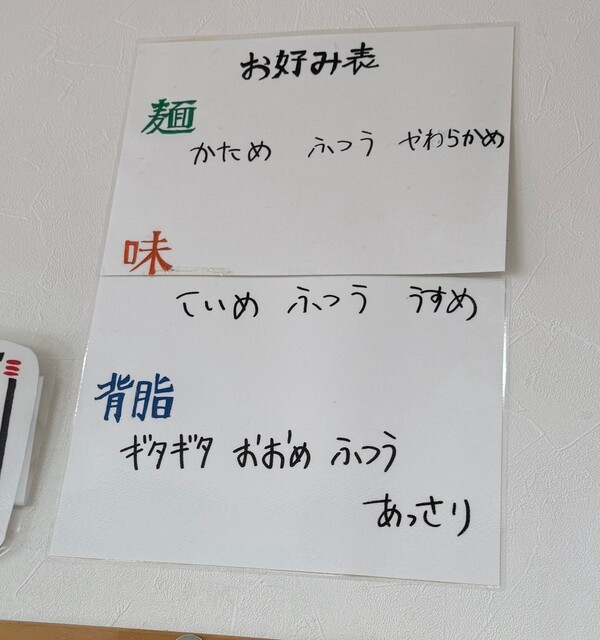 お好み表
麺
かため ふつう やわらかめ
味
こいめ ふつう うすめ
背脂
ギタギタ おおめ ふつう
あっさり